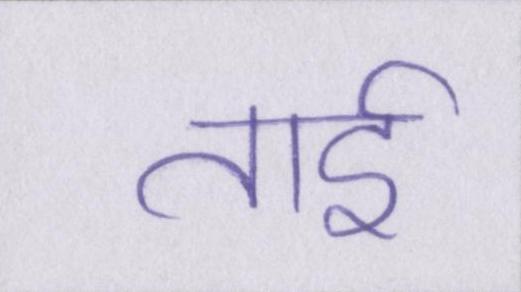 ताई